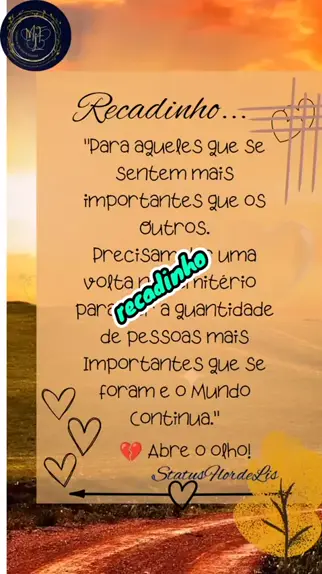 MJE
Recadinho...
"Para aqueles que se
sentem mais
importantes que os
Outros.
Precisam uma
volta
recadinho
para a quantidade
de pessoas mais
Importantes que se
foram e o Mundo
Continua."
💔 Abre o olho!
StatusFlordeLis